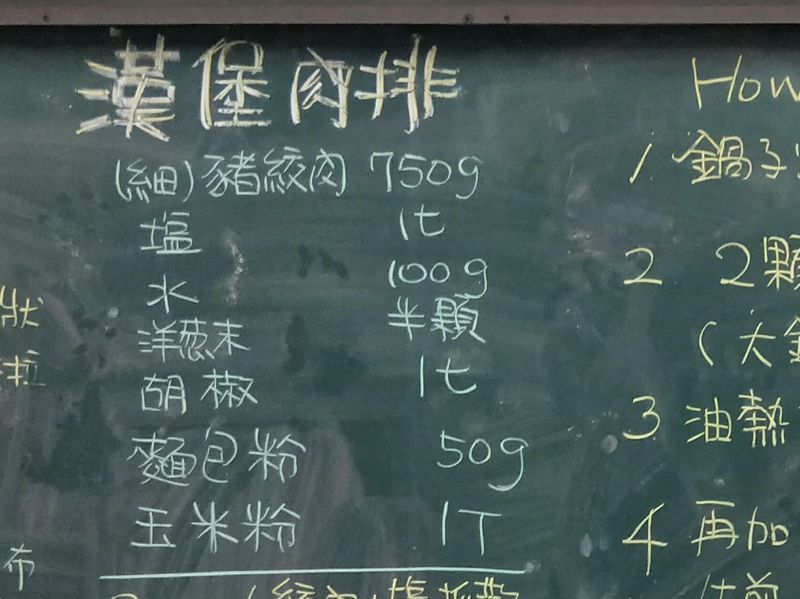 漢堡肉排
(細)豬絞肉 750g
塩 1t
水 100g
洋葱末 半顆
胡椒 1t
麵包粉 50g
玉米粉 1T
狀
拉
布
How
1 鍋子
2 2顆
(大
3 油熱
4 再加